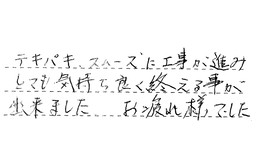 テキパキ、スムーズに工事が進み
とても気持ち良く終える事が
出来ました お疲れ様でした